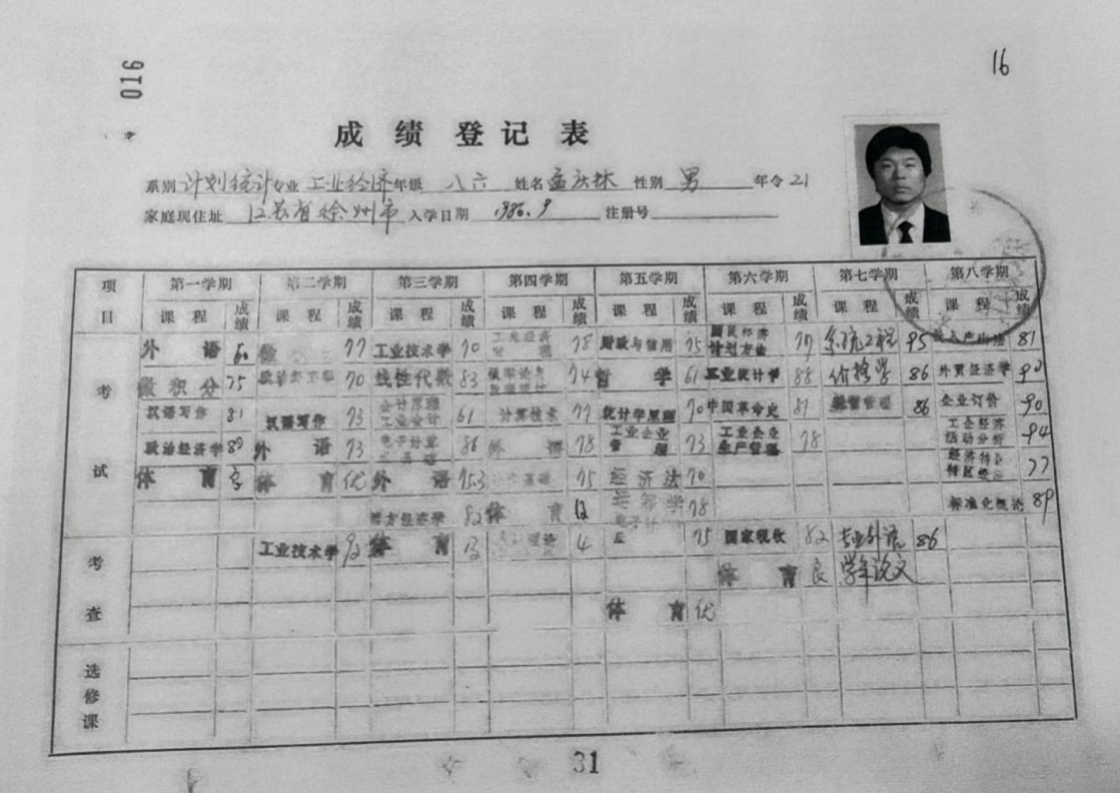 016
16
成绩登记表
系别 计划统计 专业 工业经济 年级 八六 姓名 孟庆林 性别 男 年令 21
家庭现住址 江苏省徐州市 入学日期 1986.9 注册号
项目 第一学期 第二学期 第三学期 第四学期 第五学期 第六学期 第七学期 第八学期
课程 成绩 课程 成绩 课程 成绩 课程 成绩 课程 成绩 课程 成绩 课程 成绩 课程 成绩
考试
外语 60 77 工业技术学 70 工业经济管理 78 财政与信用 75 国民经济计划方法 79 系统工程 95 投入产出法 81
微积分 75 70 线性代数 83 74 哲学 61 工业统计学 88 价格学 86 外贸经济学
汉语写作 81 汉语写作 73 会计原理工业会计 61 计算技术 77 统计学原理 70 中国革命史 81 经营管理 86 企业订价 90
政治经济学 外语 73 电子计算 86 外语 78 工业企业管理 73 工业企业生产管理 78 工企经济活动分析 94
体育 良 体育 优 外语 75.3 75 经济法 70 77
西方经济学 82 体育 经济学 78 标准化概论 89
考查
工业技术学 92 体育 电子计 75 国家税收 82 专业外语 86
体育 良 学年论文
体育 优
选修课
31